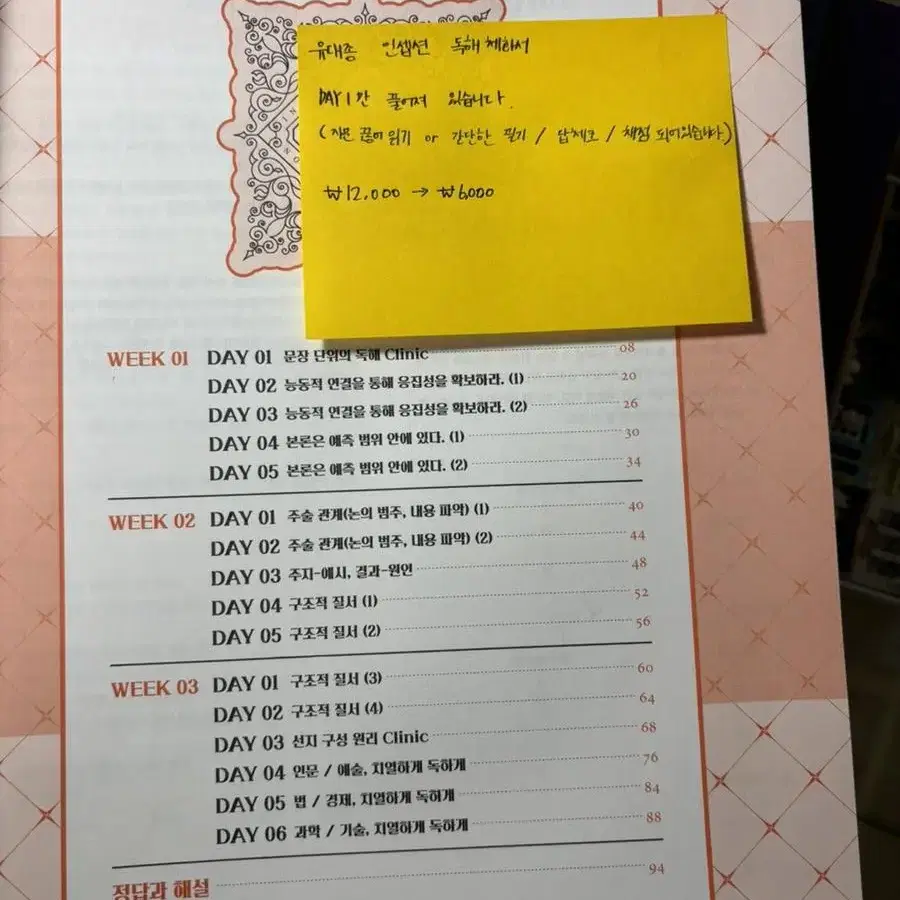 유대종 인셉션 독해 체화서
DAY 1 만 풀어져 있습니다.
(지문 끊어 읽기 or 간단한 필기 / 답 체크 / 채점 되어있습니다)
₩12,000 → ₩6,000
WEEK 01 DAY 01 문장 단위의 독해 Clinic 08
DAY 02 능동적 연결을 통해 응집성을 확보하라. (1) 20
DAY 03 능동적 연결을 통해 응집성을 확보하라. (2) 26
DAY 04 본론은 예측 범위 안에 있다. (1) 30
DAY 05 본론은 예측 범위 안에 있다. (2) 34
WEEK 02 DAY 01 주술 관계(논의 범주, 내용 파악) (1) 40
DAY 02 주술 관계(논의 범주, 내용 파악) (2) 44
DAY 03 주지-예시, 결과-원인 48
DAY 04 구조적 질서 (1) 52
DAY 05 구조적 질서 (2) 56
WEEK 03 DAY 01 구조적 질서 (3) 60
DAY 02 구조적 질서 (4) 64
DAY 03 선지 구성 원리 Clinic 68
DAY 04 인문 / 예술, 치열하게 독하게 76
DAY 05 법 / 경제, 치열하게 독하게 84
DAY 06 과학 / 기술, 치열하게 독하게 88
정답과 해설 94